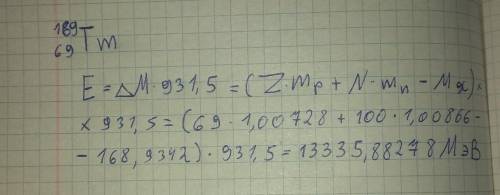 189
69 Tm
E = ΔM·931,5 = (Z·mp + N·mn - Mя) ×
× 931,5 = (69·1,00728 + 100·1,00866 -
- 168,9342)·931,5 = 13335,88278 МэВ